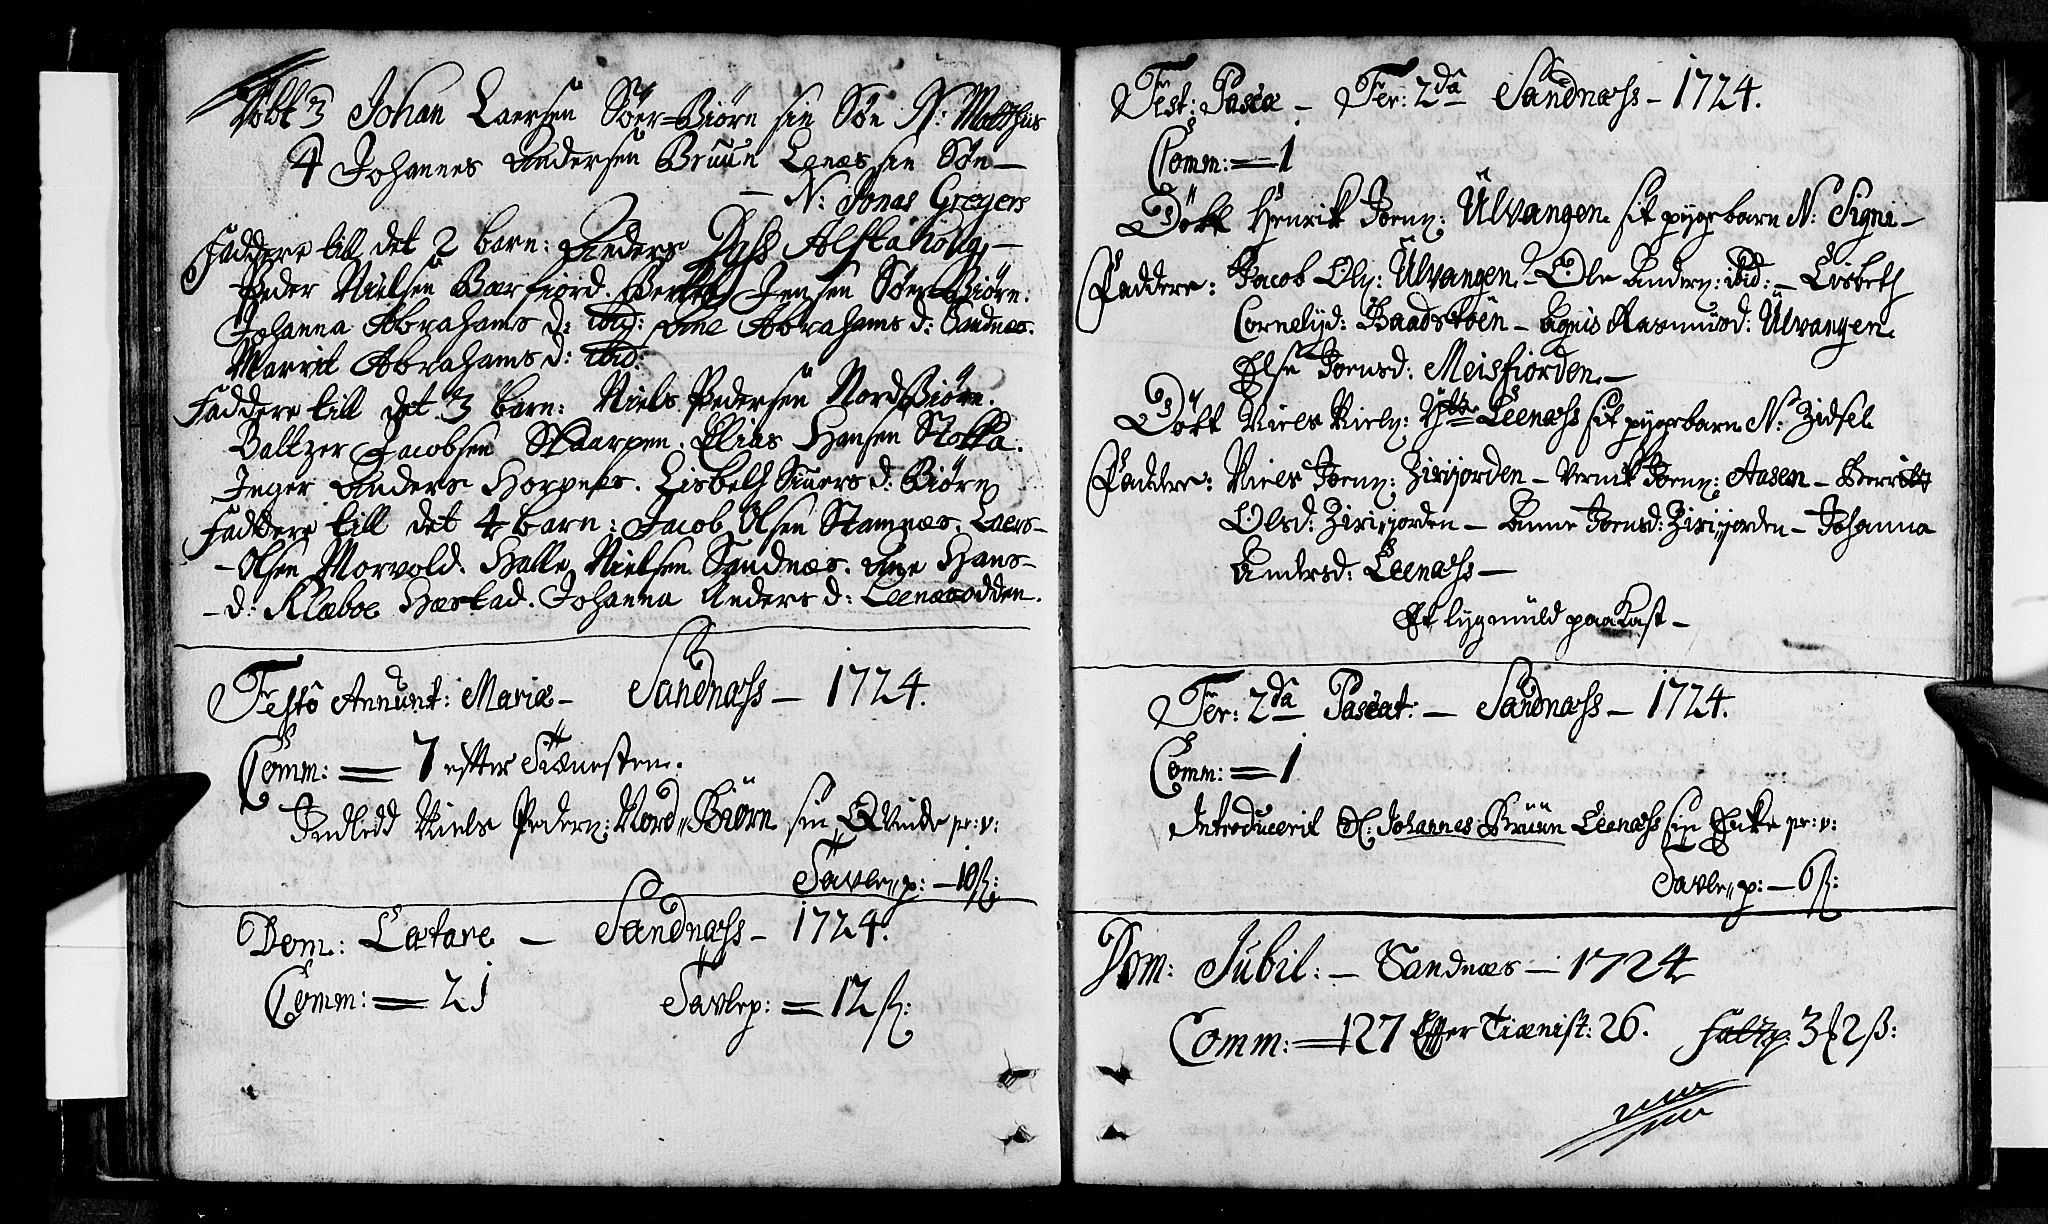 Døbt 3 Johan Laersen Søer-Biørn sin Søn N: Matthus
4 Johannes Andersen Bruun Lenæs sin Søn
N: Jonas Gregers
Faddere till det 2 barn: Peders Dass Alstahoug,
Peder Nielsen Bærfiord. Jensen Søer-Biørn.
Johanna Abrahams d: ibid: Ane Abrahams d: Sandnæs.
Marrit Abrahams d: ibid:
Faddere till det 3 barn: Niels Pedersen Nord Biørn.
Baltzer Jacobsen Skaarpen. Elias Hansen Stokka.
Inger Anders Hornnæs. Lisbeth Simers d: Biørn
Faddere till det 4 barn: Jacob Olsen Stamnæs. Laers
Olsen Morvold. Halle Nielsen Sandnæs. Ane Hans
d: Klæboe Hæstad. Johanna Anders d: Leenæsodden.
Festo Annunt: Mariæ – Sandnæss – 1724.
Comm: = 7 effter Tiænesten.
Indledd Niels Peders: Nord-Biørn sin Qvinde pr: v:
Tavle p: – 10 ß:
Dom: Lætare – Sandnæss – 1724.
Comm: = 21 Tavlep: = 12 ß:
Fest: Pasca – Fer: 2da Sandnæss – 1724.
Comm: = 1
Døbt Henrik Joens: Ulvangen sit pigebarn N: Signi –
Faddere: Jacob Ols: Ulvangen – Ole Anders: ibid: – Lisbeth
Cornelijd: Baadstøen – Agnis Rasmusd: Ulvangen.
Else Joensd: Meisfiorden –
Døbt Niels Niels: Leenæss sit pigebarn N: Zidsel
Faddere: Niels Joens: Zirifjorden – Joens: Aasen – Berrit
Olsd: Zirifjorden – Anne Joensd: Zirifjorden – Johanna
Andersd: Leenæss –
Et lyg muld paaKast –
Fer: 2da Pascat: – Sandnæss – 1724.
Comm: = 1
Introducerit Johannes Bruun Leenæss sin Enke pr: v:
Tavle p: – 6 ß:
Dom: Jubil: – Sandnæs – 1724
Comm: = 127 Effter Tiænist: 26. 3 2 ß: